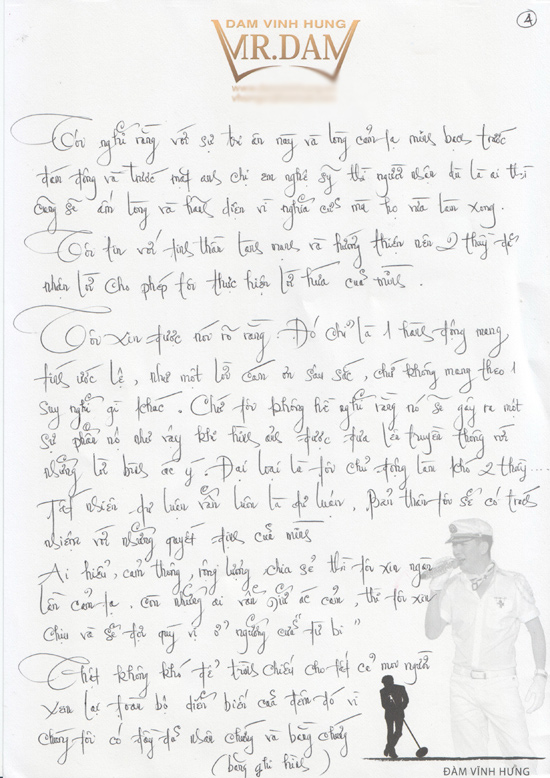 4
DAM VINH HUNG
MR.DAM
Tôi nghĩ rằng với sự tri ân này và lòng cảm tạ mình bạch trước
đám đông và trước mặt anh chị em nghệ sỹ thì người nhận dù là ai thì
cũng sẽ ấm lòng và hãnh diện vì nghĩa cử mà họ vừa làm xong.
Tôi tin với tinh thần lành mạnh và hướng thiện nên 2 thầy đã
nhận lời cho phép tôi thực hiện lời hứa của mình.
Tôi xin được nói rõ rằng. Đó chỉ là 1 hành động mang
tính ước lệ, như một lời cám ơn sâu sắc, chứ không mang theo 1
suy nghĩ gì khác. Chứ tôi không hề nghĩ rằng nó sẽ gây ra một
sự phẫn nộ như vậy khi hình ảnh được đưa lên truyền thông với
những lời bình ác ý. Đại loại là tôi chủ động làm khó 2 thầy....
Tất nhiên dư luận vẫn luôn là dư luận, Bản thân tôi sẽ có trách
nhiệm với những quyết định của mình
Ai hiểu, cảm thông, rộng lượng chia sẻ thì tôi xin ngàn
lần cảm tạ. Còn những ai vẫn giữ ác cảm, thì tôi xin
chịu và sẽ đợi quý vị ở "ngưỡng cửa từ bi"
Thật không khó để trình chiếu cho tất cả mọi người
xem lại toàn bộ diễn biến của đêm đó vì
chúng tôi có đầy đủ nhân chứng và bằng chứng
(băng ghi hình)
ĐÀM VĨNH HƯNG